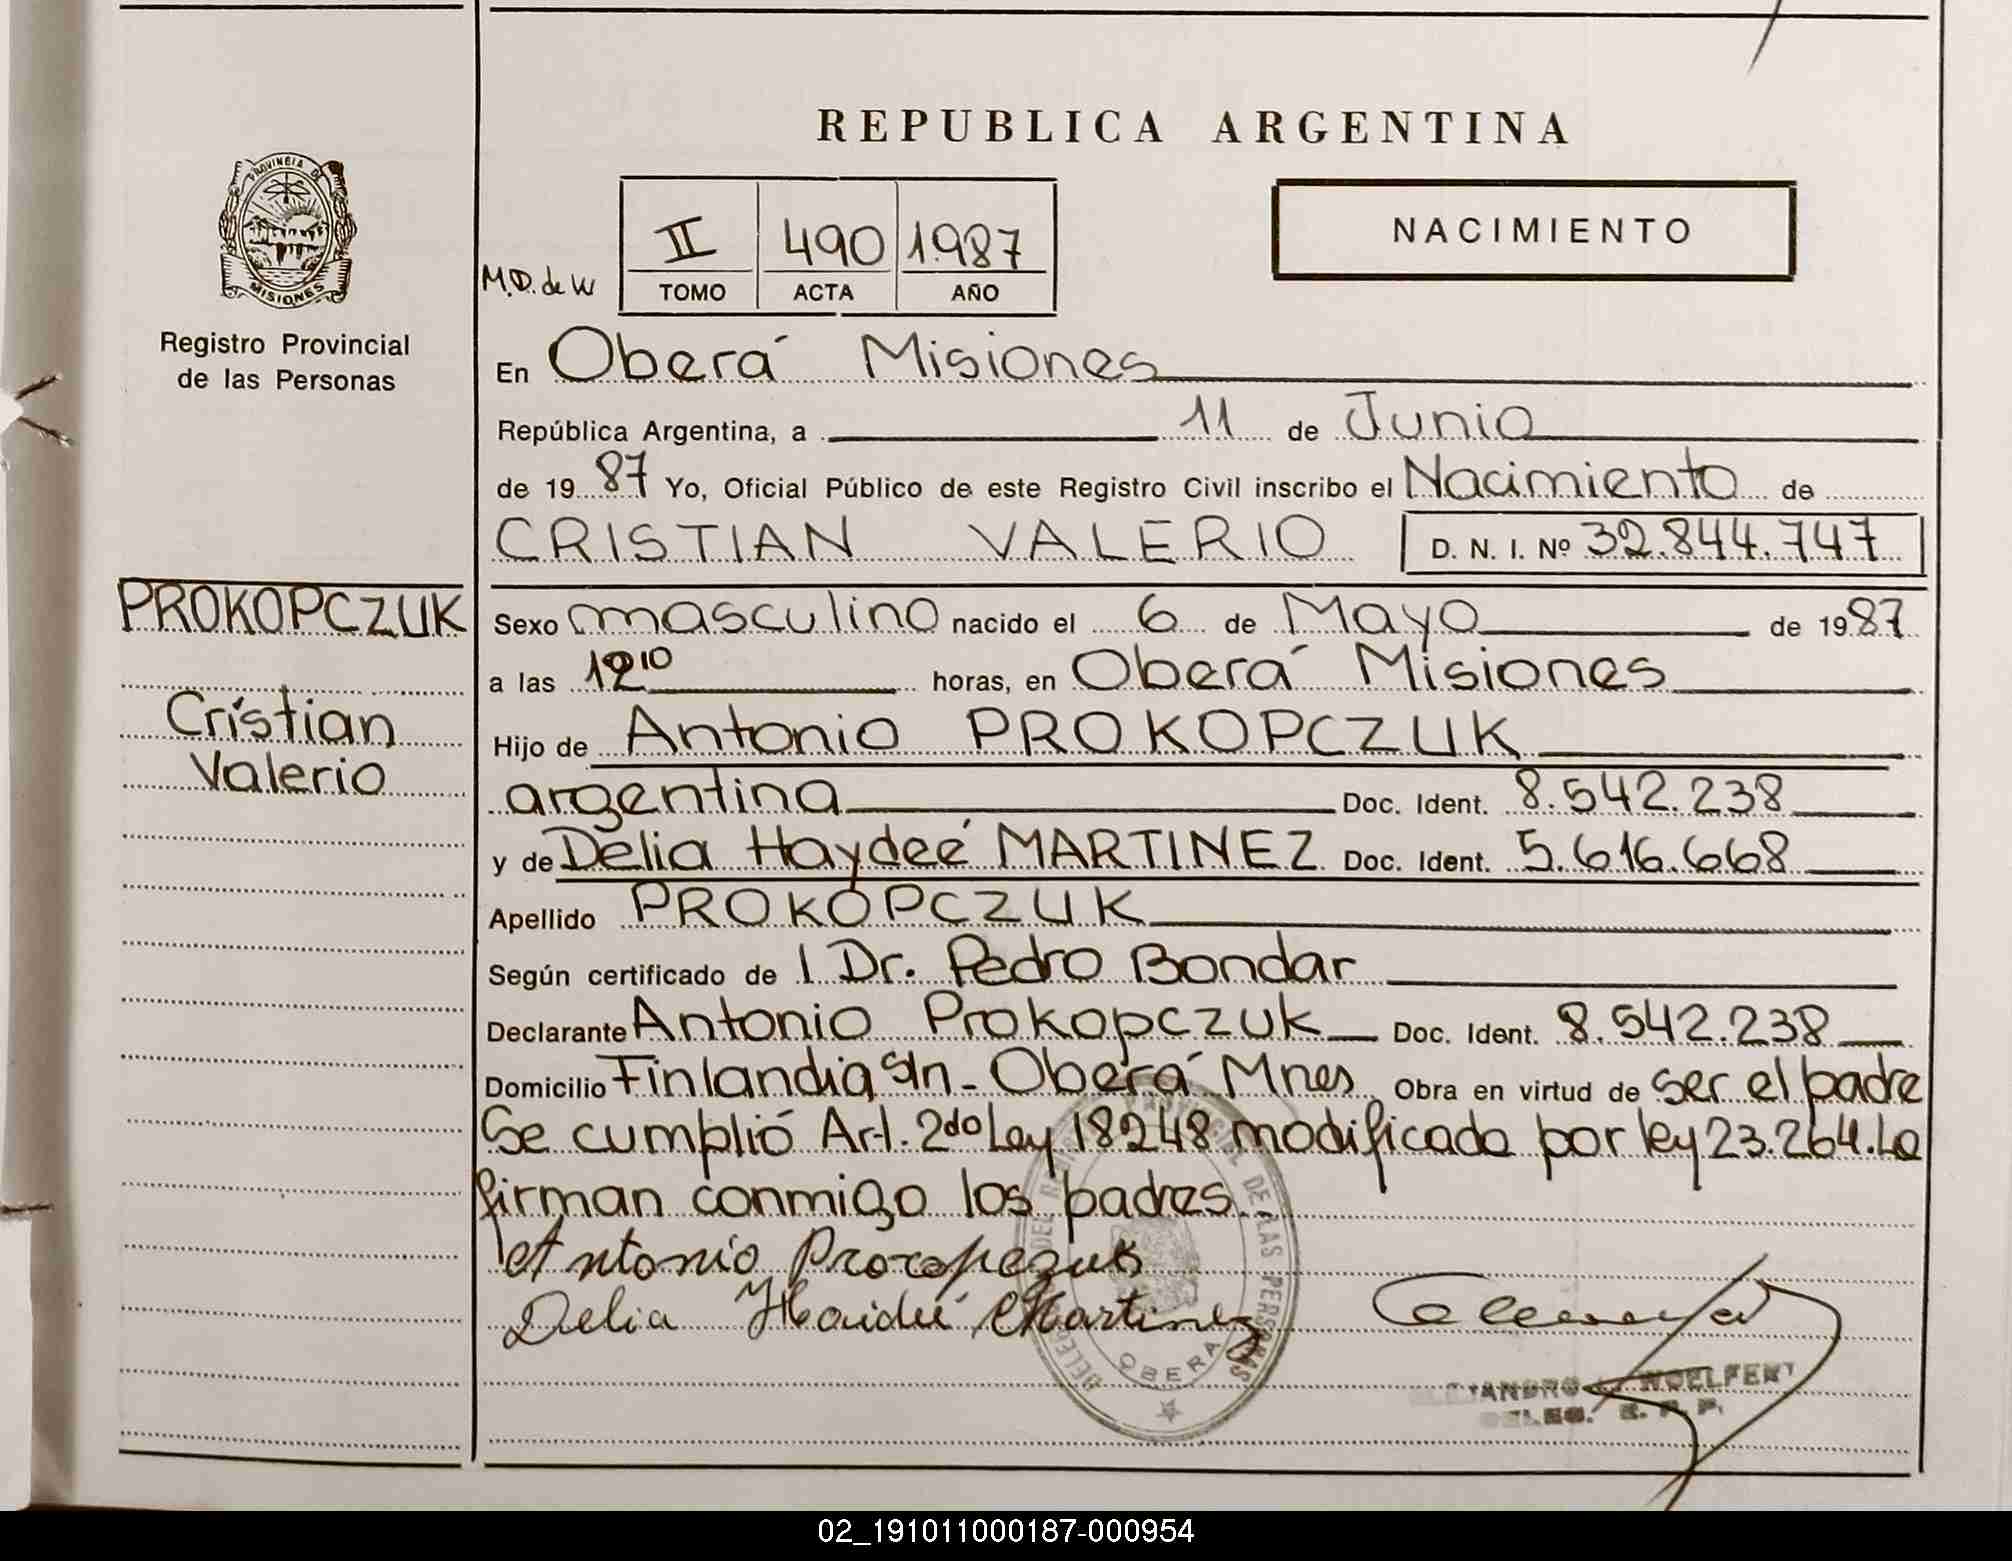 REPUBLICA ARGENTINA
PROVINCIA DE
MISIONES
Registro Provincial
de las Personas
NACIMIENTO
M.D. de W
II 490 1.987
TOMO ACTA AÑO
En Oberá Misiones
República Argentina, a 11 de Junio
de 1987 Yo, Oficial Público de este Registro Civil inscribo el Nacimiento de
CRISTIAN VALERIO D. N. I. Nº 32.844.747
PROKOPCZUK
Cristian
Valerio
Sexo masculino nacido el 6 de Mayo de 1987
a las 12¹⁰ horas, en Oberá Misiones
Hijo de Antonio PROKOPCZUK
argentina Doc. Ident. 8.542.238
y de Delia Haydeé MARTINEZ Doc. Ident. 5.616.668
Apellido PROKOPCZUK
Según certificado de l Dr. Pedro Bondar
Declarante Antonio Prokopczuk Doc. Ident. 8.542.238
Domicilio Finlandia S/n - Oberá Mnes Obra en virtud de ser el padre
Se cumplió Art. 2do Ley 18248 modificado por ley 23.264. Lo
firman conmigo los padres.
Antonio Procopczuk
Delia Haideé Martinez
DE LAS PERSONAS
OBERA
DELEG. R. P. P.
02_191011000187-000954